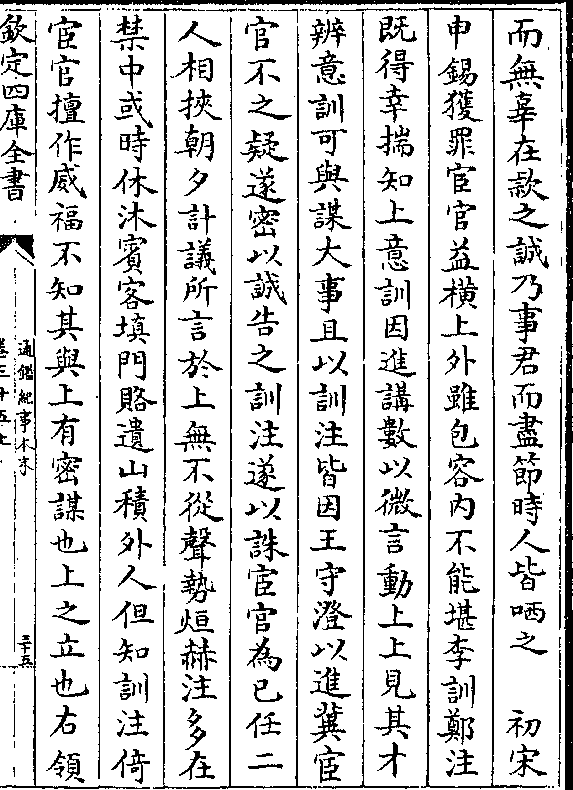 而無辜在款之誠乃事君而盡節時人皆哂之　初宋
申錫獲罪宦官益橫上外雖包容内不能堪李訓鄭注
既得幸揣知上意訓因進講數以微言動上上見其才
辨意訓可與謀大事且以訓注皆因王守澄以進冀宦
官不之疑遂密以誠告之訓注遂以誅宦官為已任二
人相挾朝夕計議所言於上無不從聲勢烜赫注多在
禁中或時休沐賓客填門賂遺山積外人但知訓注倚
宦官擅作威福不知其與上有密謀也上之立也右領
欽定四庫全書
通鑑紀事本末
卷三十五
三十五